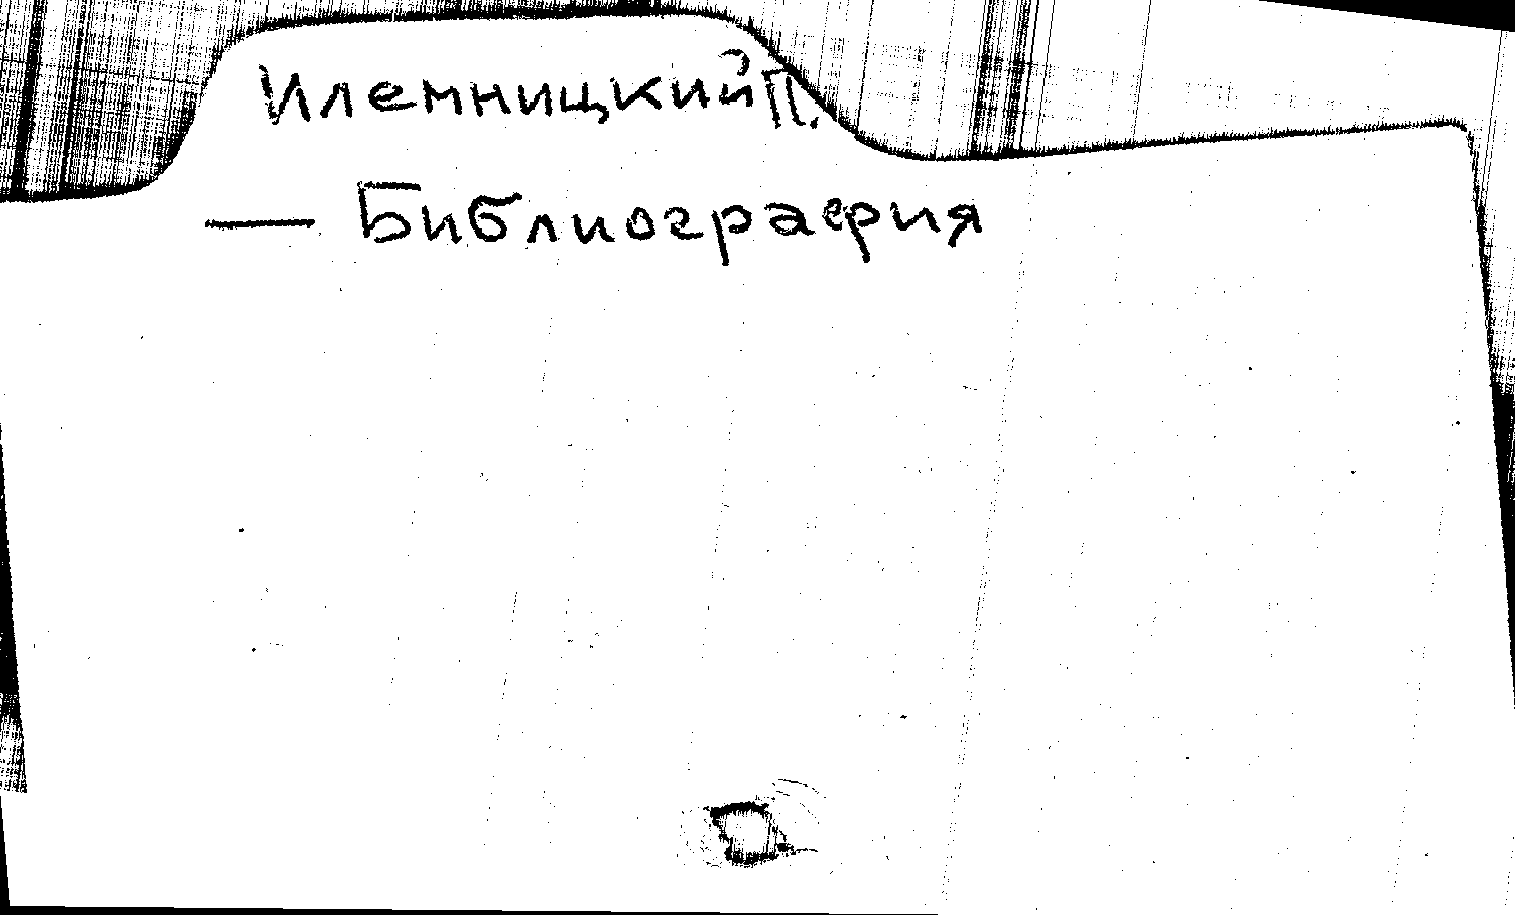 Илемницкий П.
— Библиография